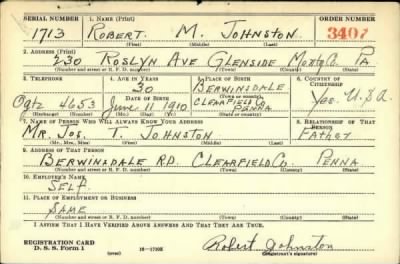 SERIAL NUMBER 1. NAME (Print) ORDER NUMBER
1713 ROBERT M. JOHNSTON 3407
(First) (Middle) (Last)
2. ADDRESS (Print)
230 ROSLYN AVE GLENSIDE MONTG Co. PA
(Number and street or R. F. D. number) (Town) (County) (State)
3. TELEPHONE 4. AGE IN YEARS 5. PLACE OF BIRTH 6. COUNTRY OF CITIZENSHIP
30 BERWINSDALE
DATE OF BIRTH (Town or county)
Ogtz 4653 June 11 1910 CLEARFIELD Co PENNA Yes. U.S.A
(Exchange) (Number) (Mo.) (Day) (Yr.) (State or country)
7. NAME OF PERSON WHO WILL ALWAYS KNOW YOUR ADDRESS 8. RELATIONSHIP OF THAT PERSON
MR. JOS. T. JOHNSTON FATHER
(Mr., Mrs., Miss) (First) (Middle) (Last)
9. ADDRESS OF THAT PERSON
BERWINSDALE RD. CLEARFIELD Co. PENNA
(Number and street or R. F. D. number) (Town) (County) (State)
10. EMPLOYER'S NAME
SELF.
11. PLACE OF EMPLOYMENT OR BUSINESS
SAME
(Number and street or R. F. D. number) (Town) (County) (State)
I AFFIRM THAT I HAVE VERIFIED ABOVE ANSWERS AND THAT THEY ARE TRUE.
REGISTRATION CARD
D. S. S. Form 1 (over) 16—17105 Robert Johnston
(Registrant's signature)